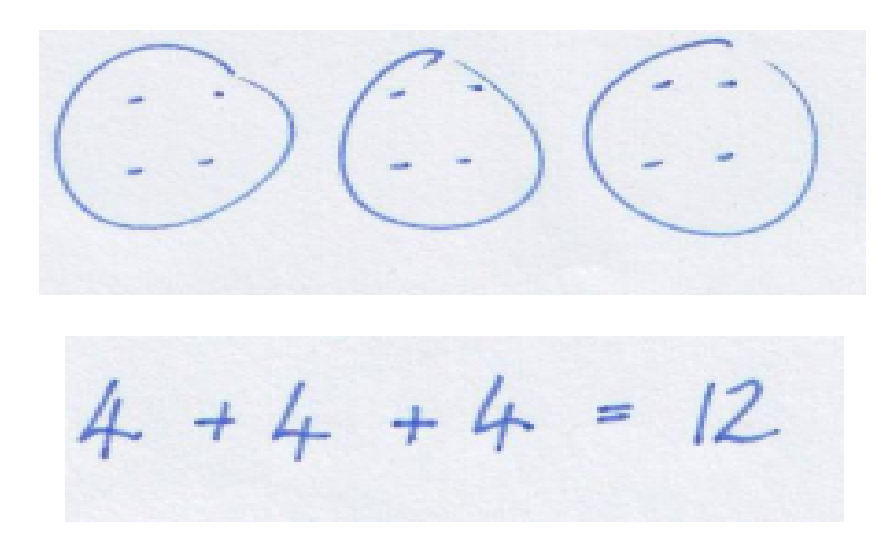 4 + 4 + 4 = 12